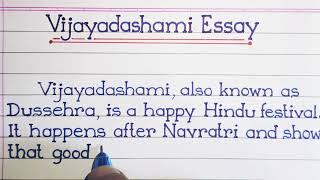 Vijayadashami Essay
Vijayadashami, also known as
Dussehra, is a happy Hindu festival.
It happens after Navratri and show
that good